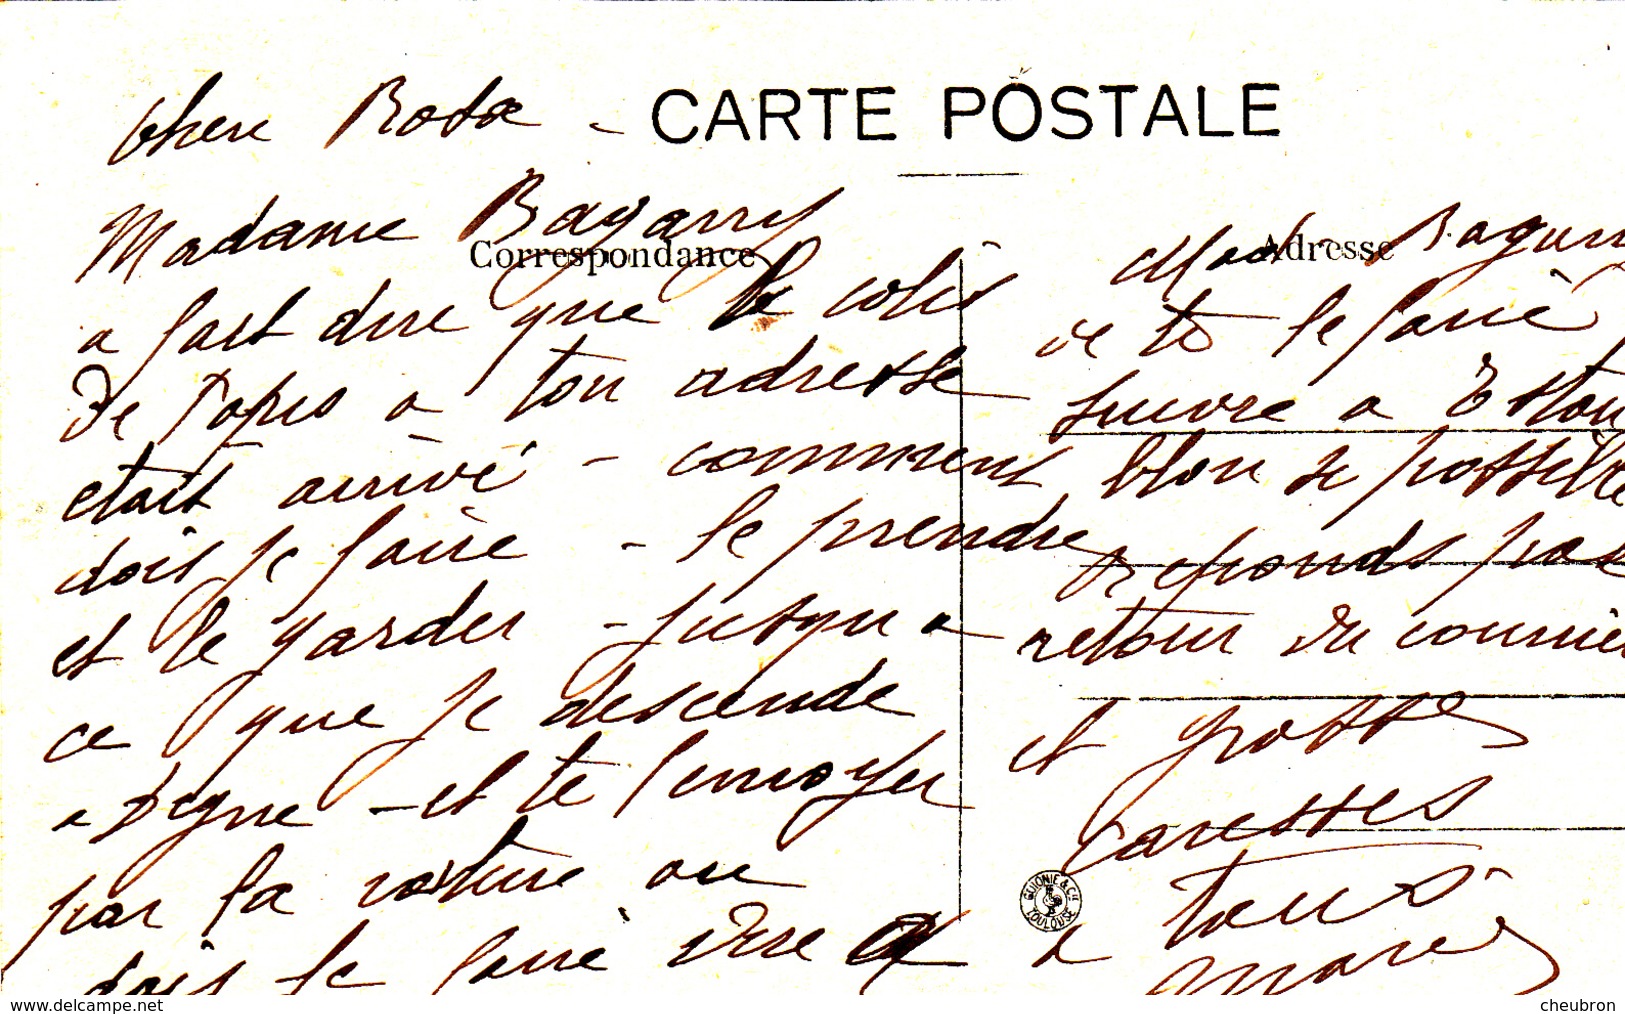 chere Rosa -
CARTE POSTALE
Madame Bagarry
Correspondance
a fait dire que le colis
de Papis a ton adresse
etait arrivé - comment
dois je faire - le prendre
et le garder - jusqu a
ce que je descende
a Digne - et te l envoyer
par la voiture ou
dois je faire dire a
Adresse
Mad Bagarry
de te le faire
suivre a Eston
blon si possible
reponds par
retour du courrier
et grosses
caresses
a tous
GUIONIE & Cie
TOULOUSE
delcampe.net
cheubron